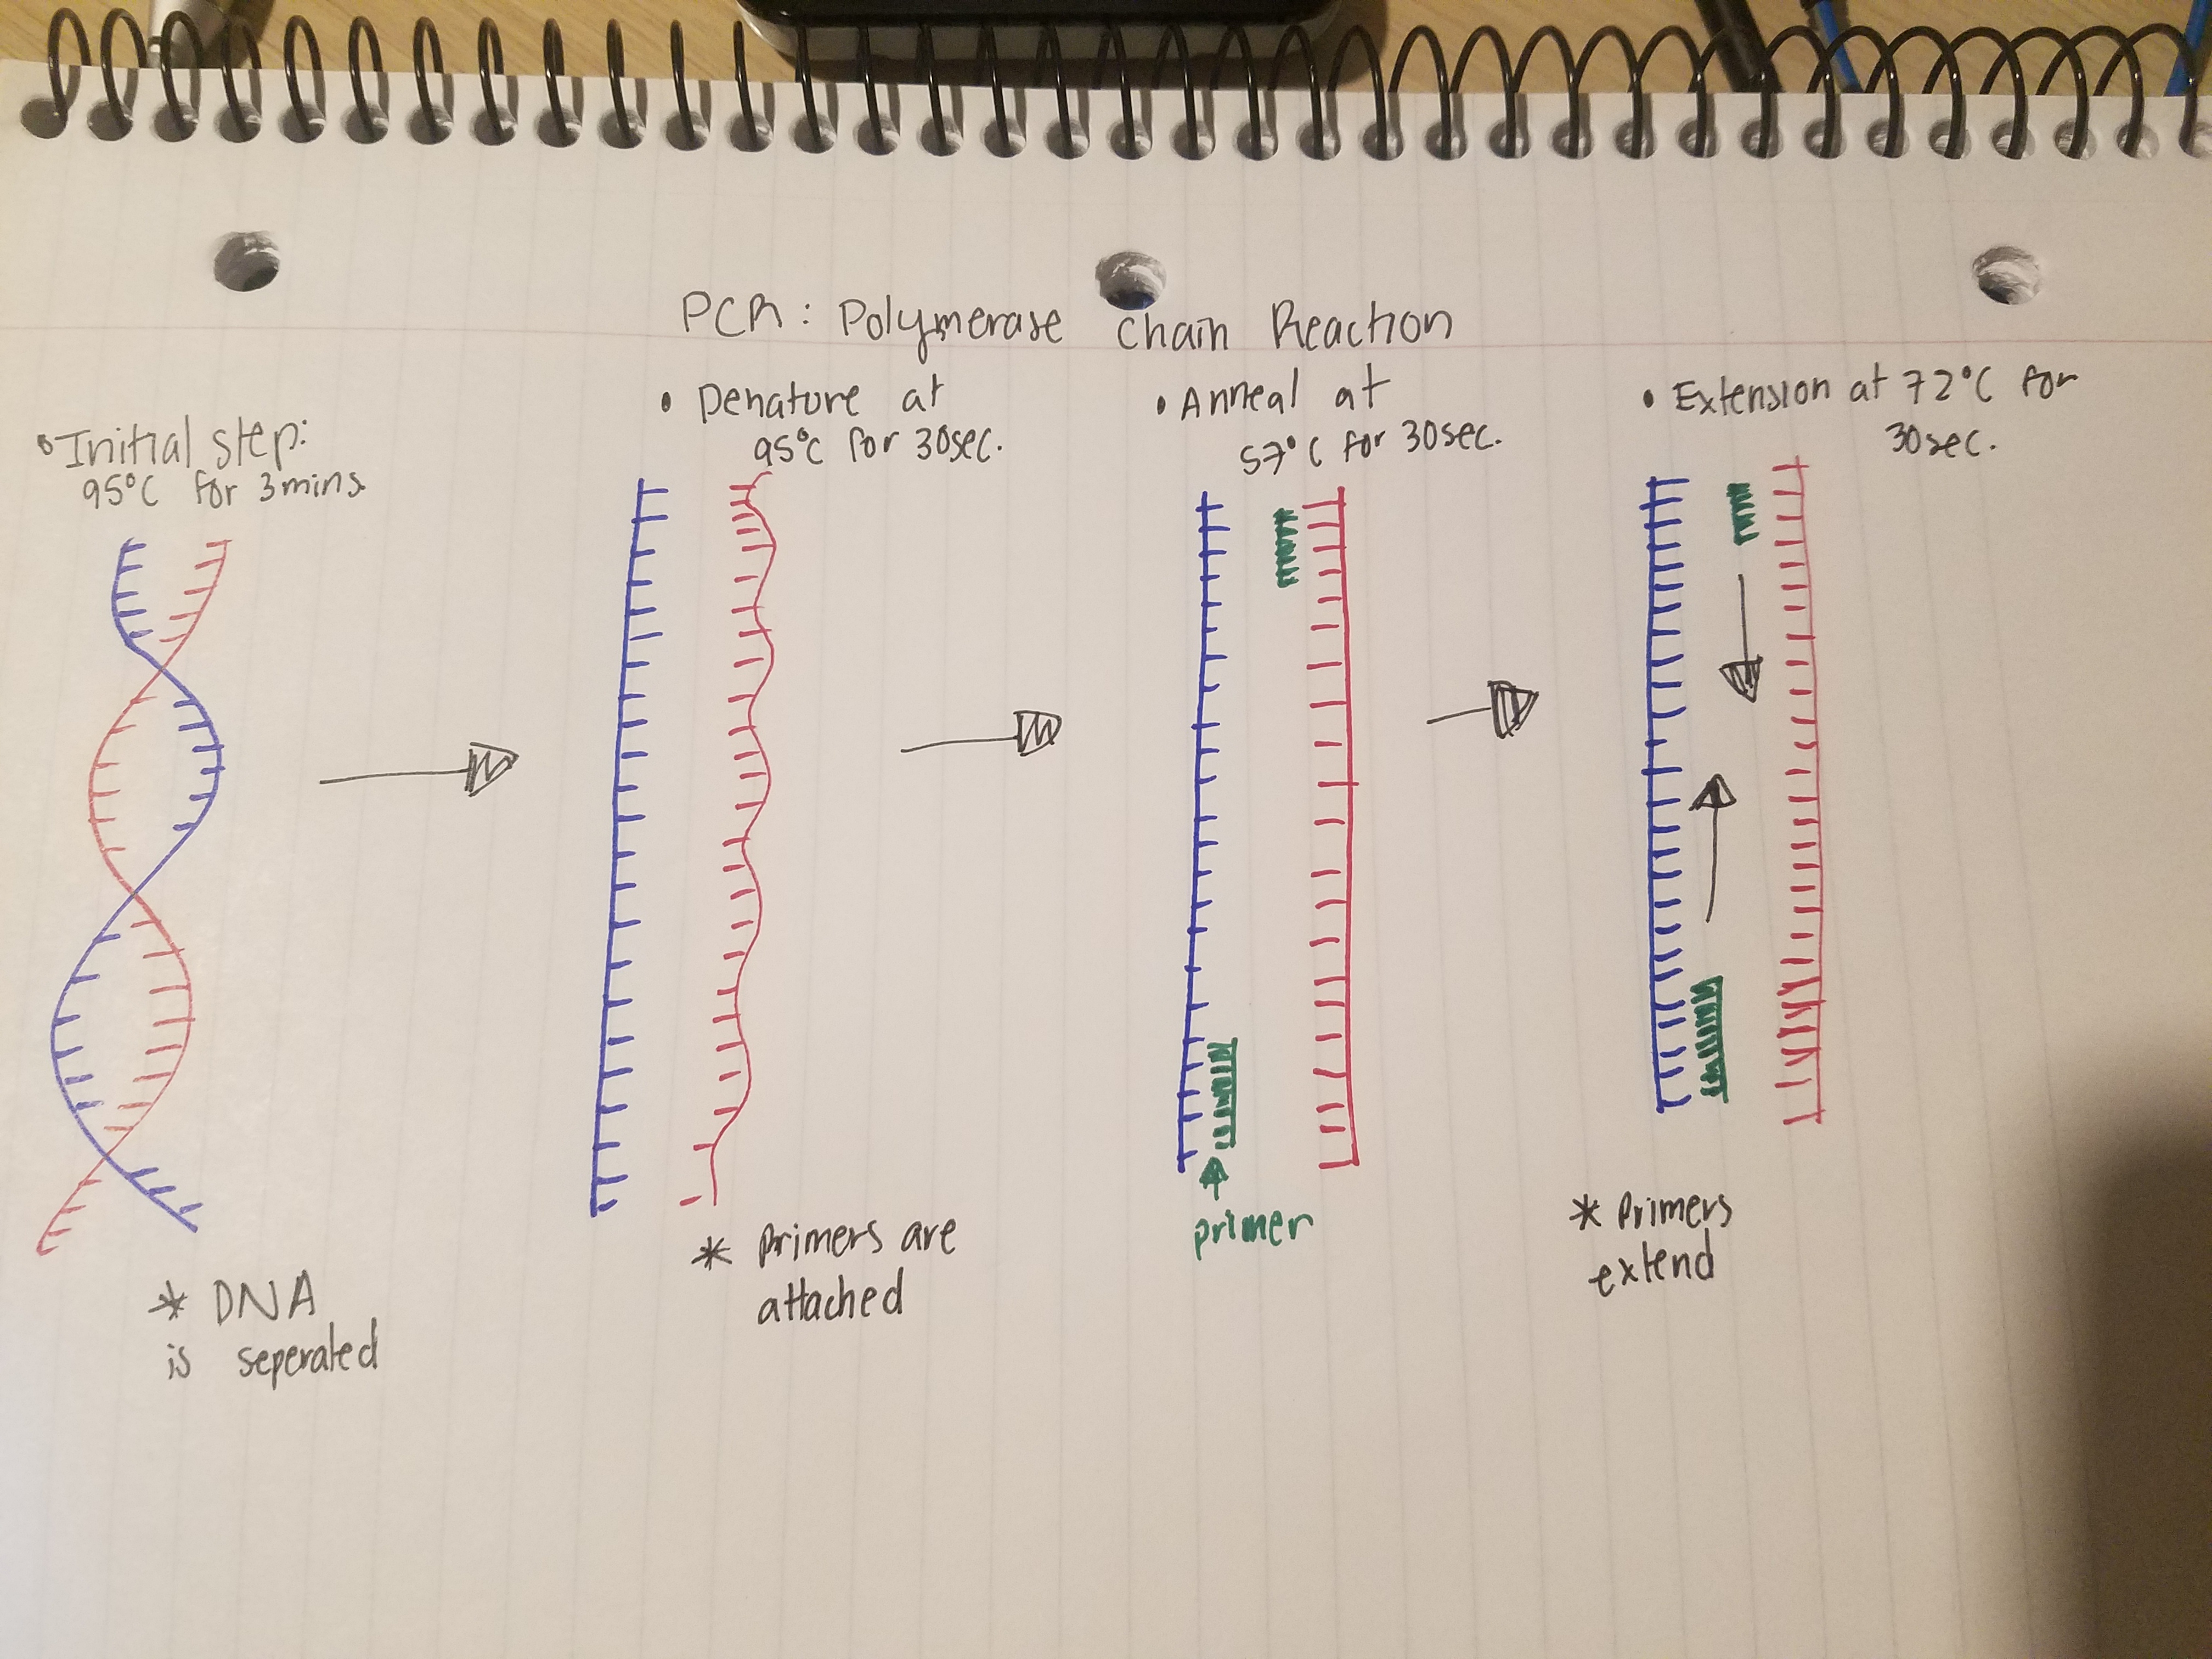 PCR: Polymerase Chain Reaction
• Initial step:
95°C for 3mins.
• Denature at
95°C for 30sec.
• Anneal at
57°C for 30sec.
• Extension at 72°C for
30sec.
* DNA
is seperated
* Primers are
attached
primer
* Primers
extend